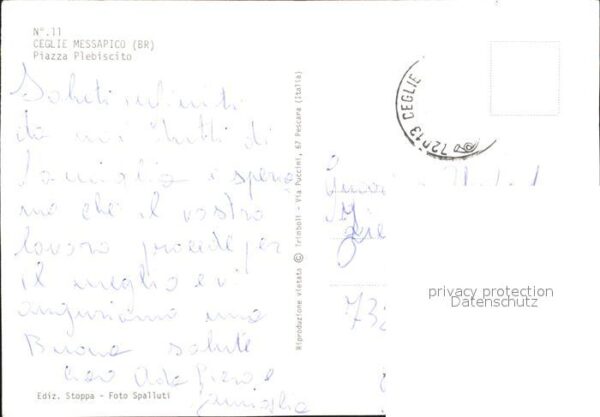 N°.11
CEGLIE MESSAPICO (BR)
Piazza Plebiscito
Saluti infiniti
da noi tutti di
famiglia e speria
mo che il vostro
lavoro procede per
il meglio e vi
auguriamo una
Buona salute
Ciao Piero e
famiglia
Ediz. Stoppa - Foto Spalluti
Riproduzione vietata © Trimboli - Via Puccini, 67 Pescara (Italia)
72013 CEGLIE
73
privacy protection
Datenschutz